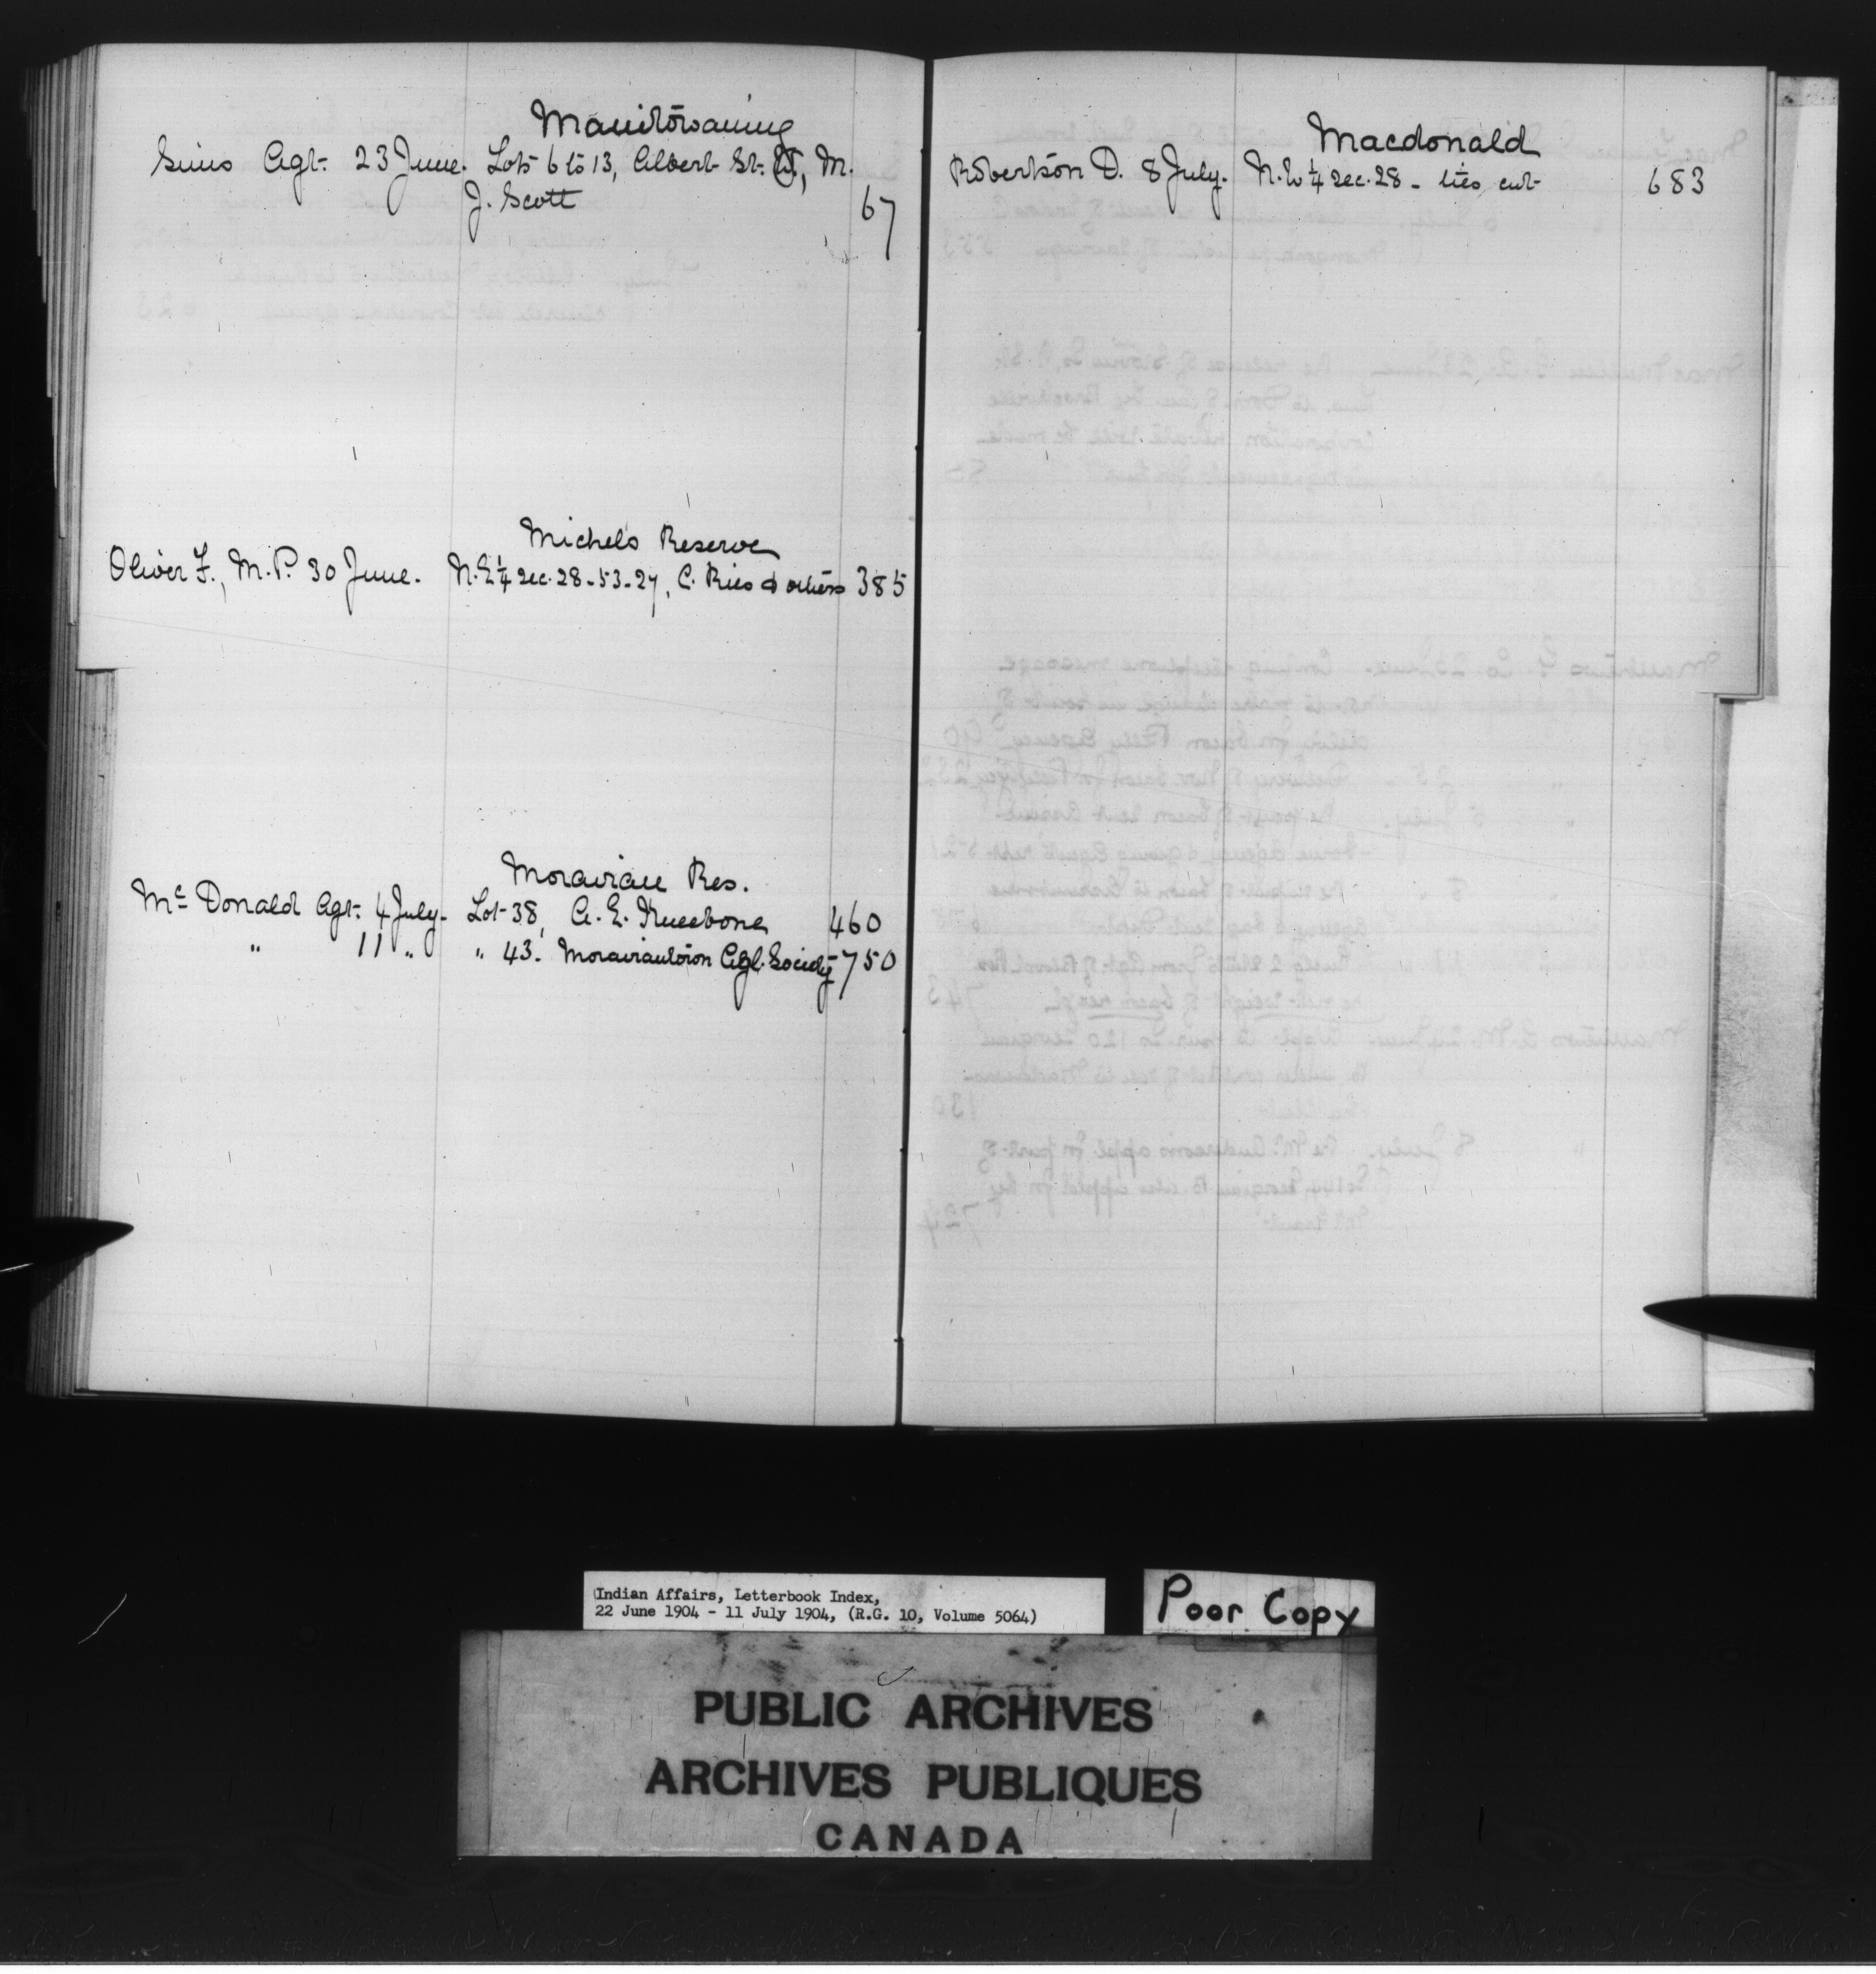 Manitowaning
Sims Agt. 23 June. Lots 6 to 13, Albert St. W, M.
J. Scott 67
Michels Reserve
Oliver F., M.P. 30 June. N.E 1/4 sec. 28-53-27, C. Ries & others 385
Moravian Res.
Mc Donald Agt. 4 July. Lot 38, A. E. 460
" 11 " " 43. Moraviantown Agl. Society 750
Macdonald
Robertson D. 8 July. 1/4 sec. 28 - ties cut 683
Indian Affairs, Letterbook Index,
22 June 1904 - 11 July 1904, (R.G. 10, Volume 5064)
Poor Copy
PUBLIC ARCHIVES
ARCHIVES PUBLIQUES
CANADA